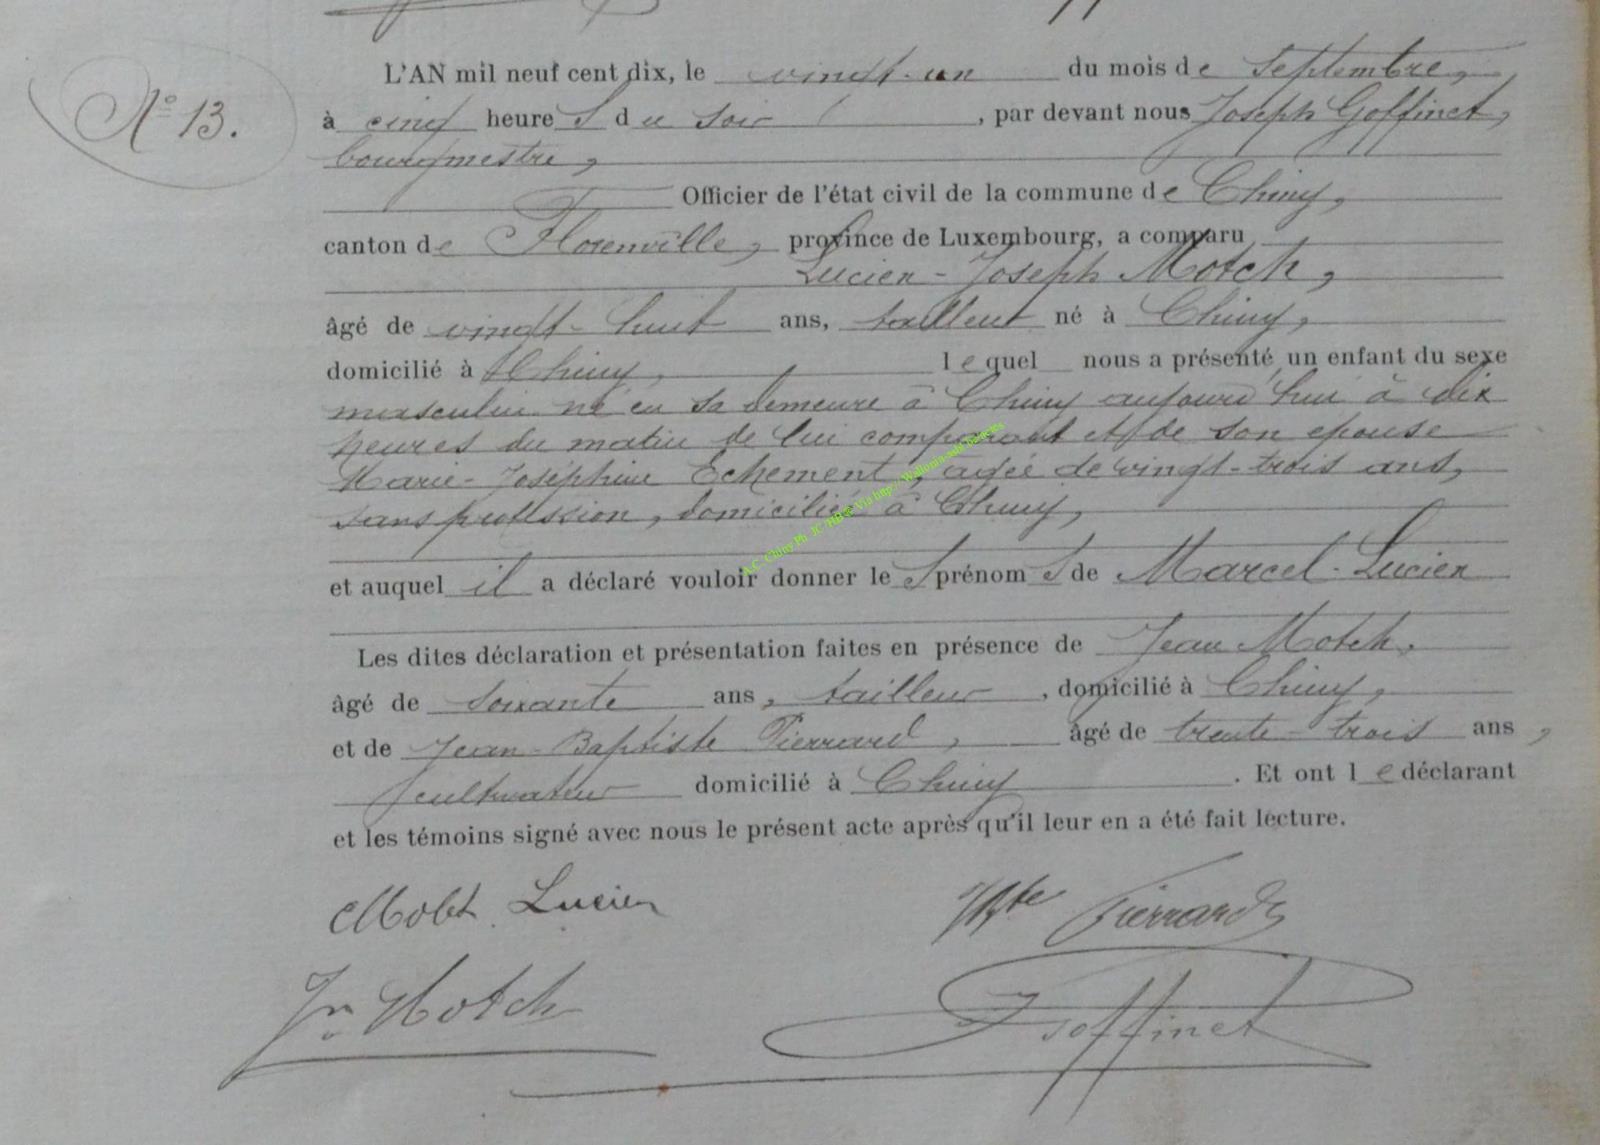 N° 13.
L'AN mil neuf cent dix, le vingt-un du mois de Septembre,
à cinq heures du soir, par devant nous Joseph Goffinet,
bourgmestre,
Officier de l'état civil de la commune de Chiny,
canton de Florenville, province de Luxembourg, a comparu
Lucien-Joseph Motch,
âgé de vingt-huit ans, tailleur né à Chiny,
domicilié à Chiny, lequel nous a présenté un enfant du sexe
masculin né en sa demeure à Chiny aujourd'hui à dix
heures du matin de lui comparant et de son épouse
Marie-Joséphine Echement, agée de vingt-trois ans,
sans profession, domiciliée à Chiny,
et auquel il a déclaré vouloir donner les prénoms de Marcel-Lucien
Les dites déclaration et présentation faites en présence de Jean Motch,
âgé de soixante ans, tailleur, domicilié à Chiny,
et de Jean-Baptiste Pierrard, âgé de trente-trois ans,
cultivateur domicilié à Chiny. Et ont le déclarant
et les témoins signé avec nous le présent acte après qu'il leur en a été fait lecture.
Motch Lucien
Pierrard
Jn Motch
J Goffinet
A.C. Chiny Ph JC